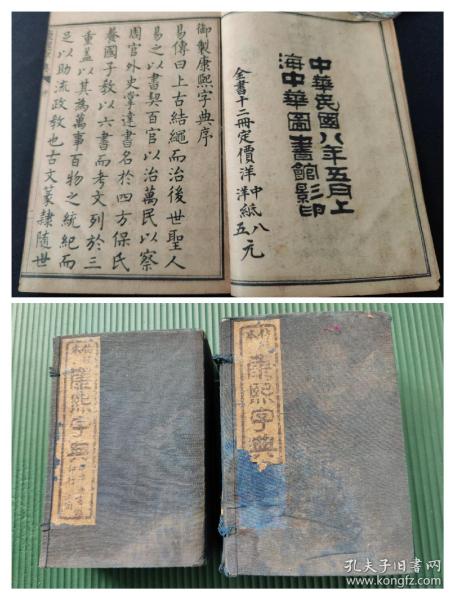 中華民國八年五月上
海中華圖書館影印
全書十二冊定價洋中紙八
洋紙五元
御製康熙字典序
易傳曰上古結繩而治後世聖人
易之以書契百官以治萬民以察
周官外史掌達書名於四方保氏
養國子教以六書而考文列於三
重蓋以其為萬事百物之統紀而
足以助流政教也古文篆隸隨世
康熙字典
康熙字典
孔夫子旧書网
www.kongfz.com